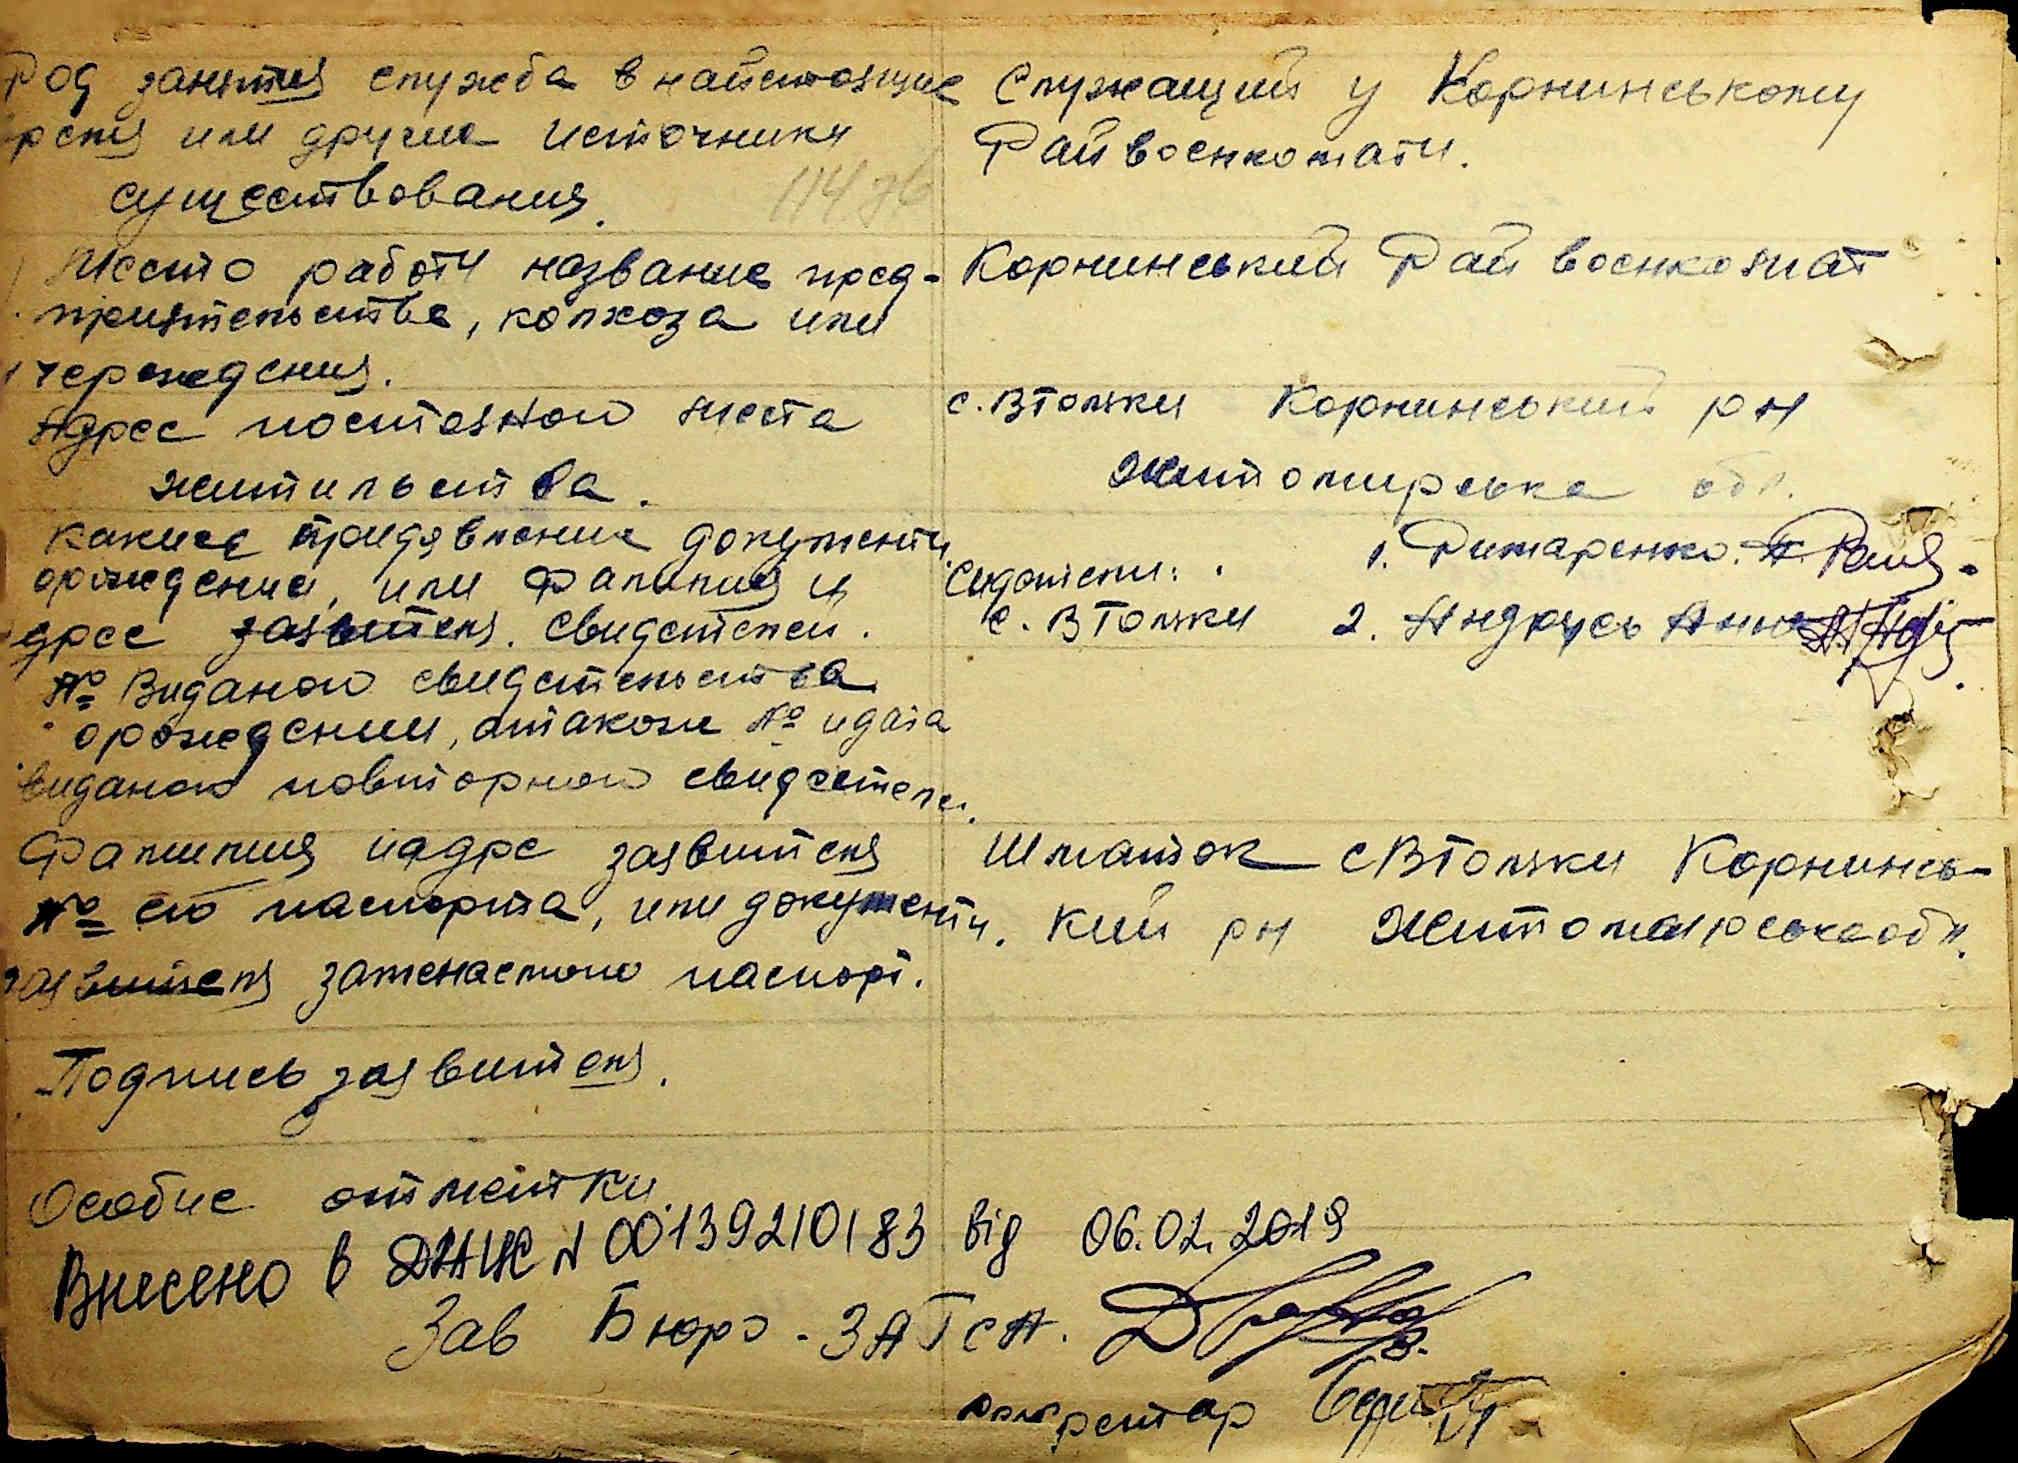 Род занятия служба в найстоящие
рспя или другие источники
существования.
114 зв
Служащий у Корнинському
Райвоенкомати.
Место работи название пред-
приятельства, колхоза или
учереждения.
Корнинський Рай военкомат
Адрес постояного места
жительства.
с. Втолжки Корнинський рн
Житомирська обл.
какиее придявление документи
орождение, или Фалилия и
дрес заявителя. свидетелей.
Сидетели: 1. Римаренко.
с. Втолжки 2. Андрусь Анна
№ Виданого свидетельства
орождении, атакоже № идата
виданого повторного свидетель.
Фамилия иадре заявителя
№ его паспорта, или документи.
заявителя заменяемого паспорт.
Шматок с Втолжки Корнинсь-
кий рн Житомирська обл.
Подпись заявителя.
Особие отметки
Внесено в ДРАЦС N 00139210183 від 06.02.2019
Зав Бюро - ЗАГСА.
секретар